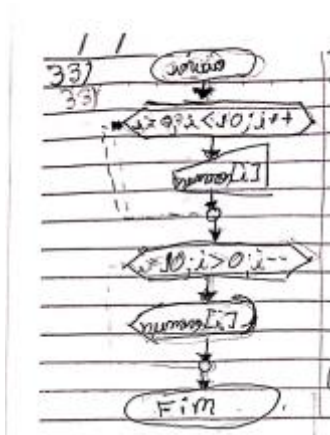 33)
33)
início
i=0; i<10; i++
numeros[i]
i=10; i>0; i--
numeros[i]
FiM